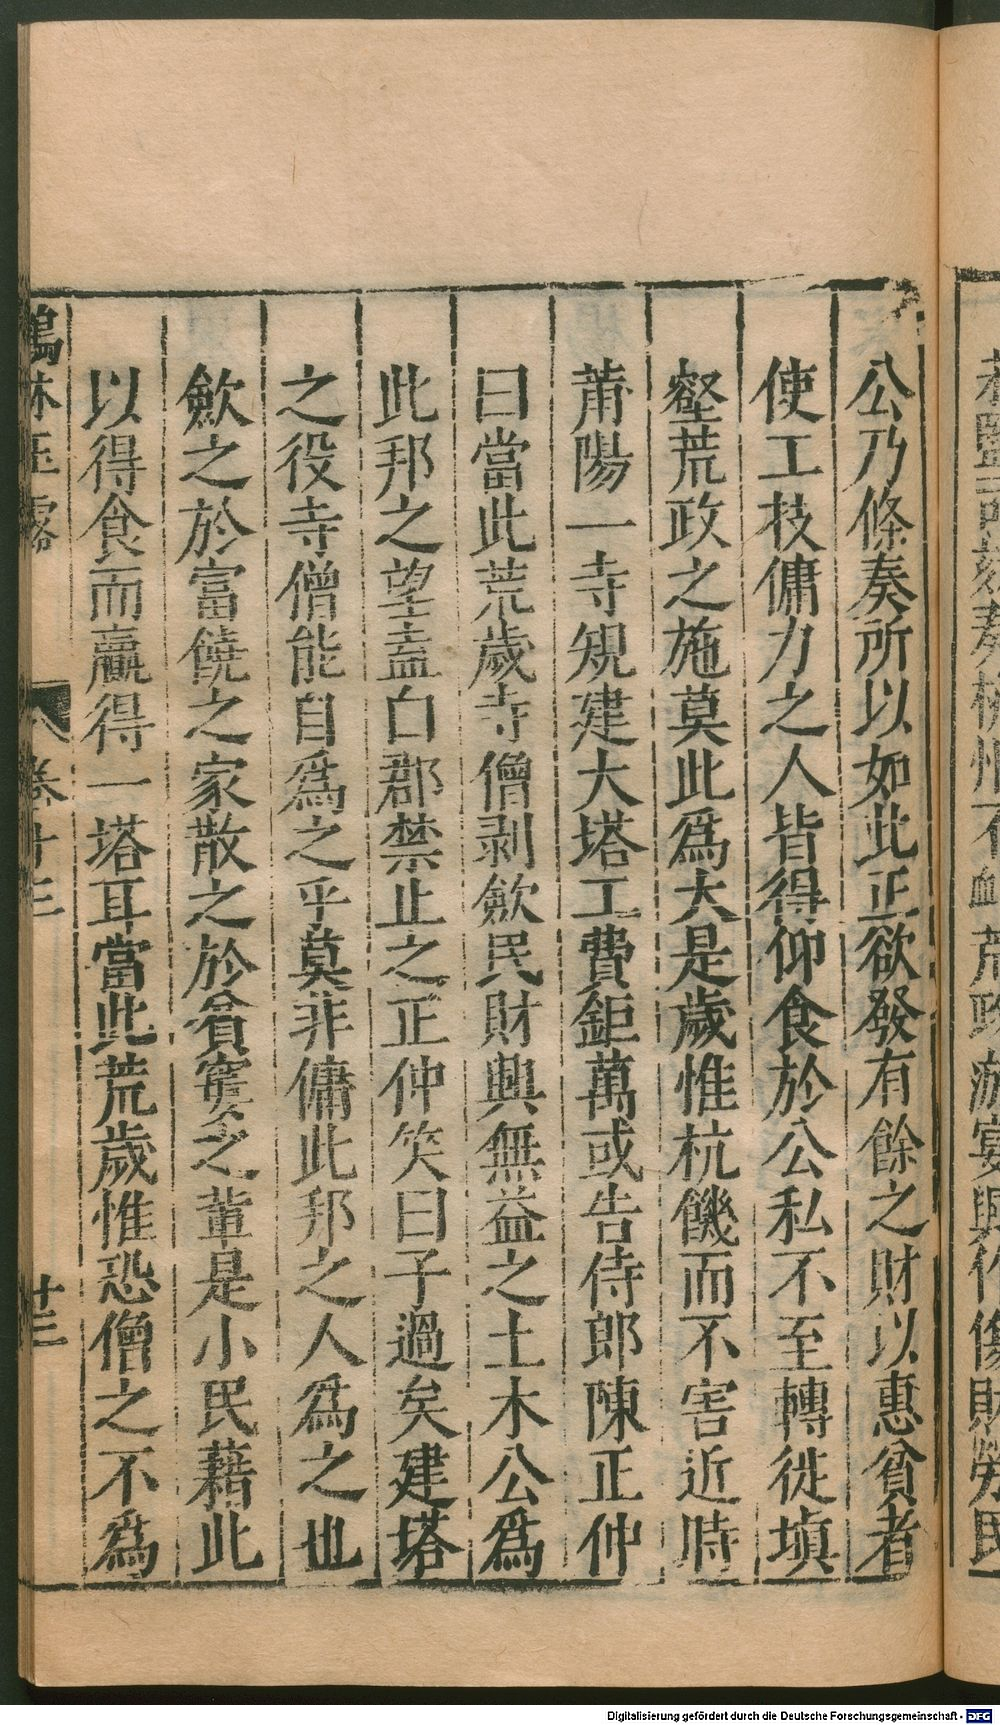 公乃條奏所以如此正欲發有餘之財以惠貧者
使工技傭力之人皆得仰食於公私不至轉徙塡
壑荒政之施莫此爲大是歲惟杭饑而不害近時
莆陽一寺規建大塔工費鉅萬或告侍郎陳正仲
曰當此荒歲寺僧剥歛民財興無益之土木公爲
此邦之望盍白郡禁止之正仲笑曰子過矣建塔
之役寺僧能自爲之乎莫非傭此邦之人爲之也
歛之於富饒之家散之於貧窶之輩是小民藉此
以得食而贏得一塔耳當此荒歲惟恐僧之不爲
鶴林玉露 卷十三 十三
杭州不䘏荒政游宴興作傷財勞民
Digitalisierung gefördert durch die Deutsche Forschungsgemeinschaft - DFG